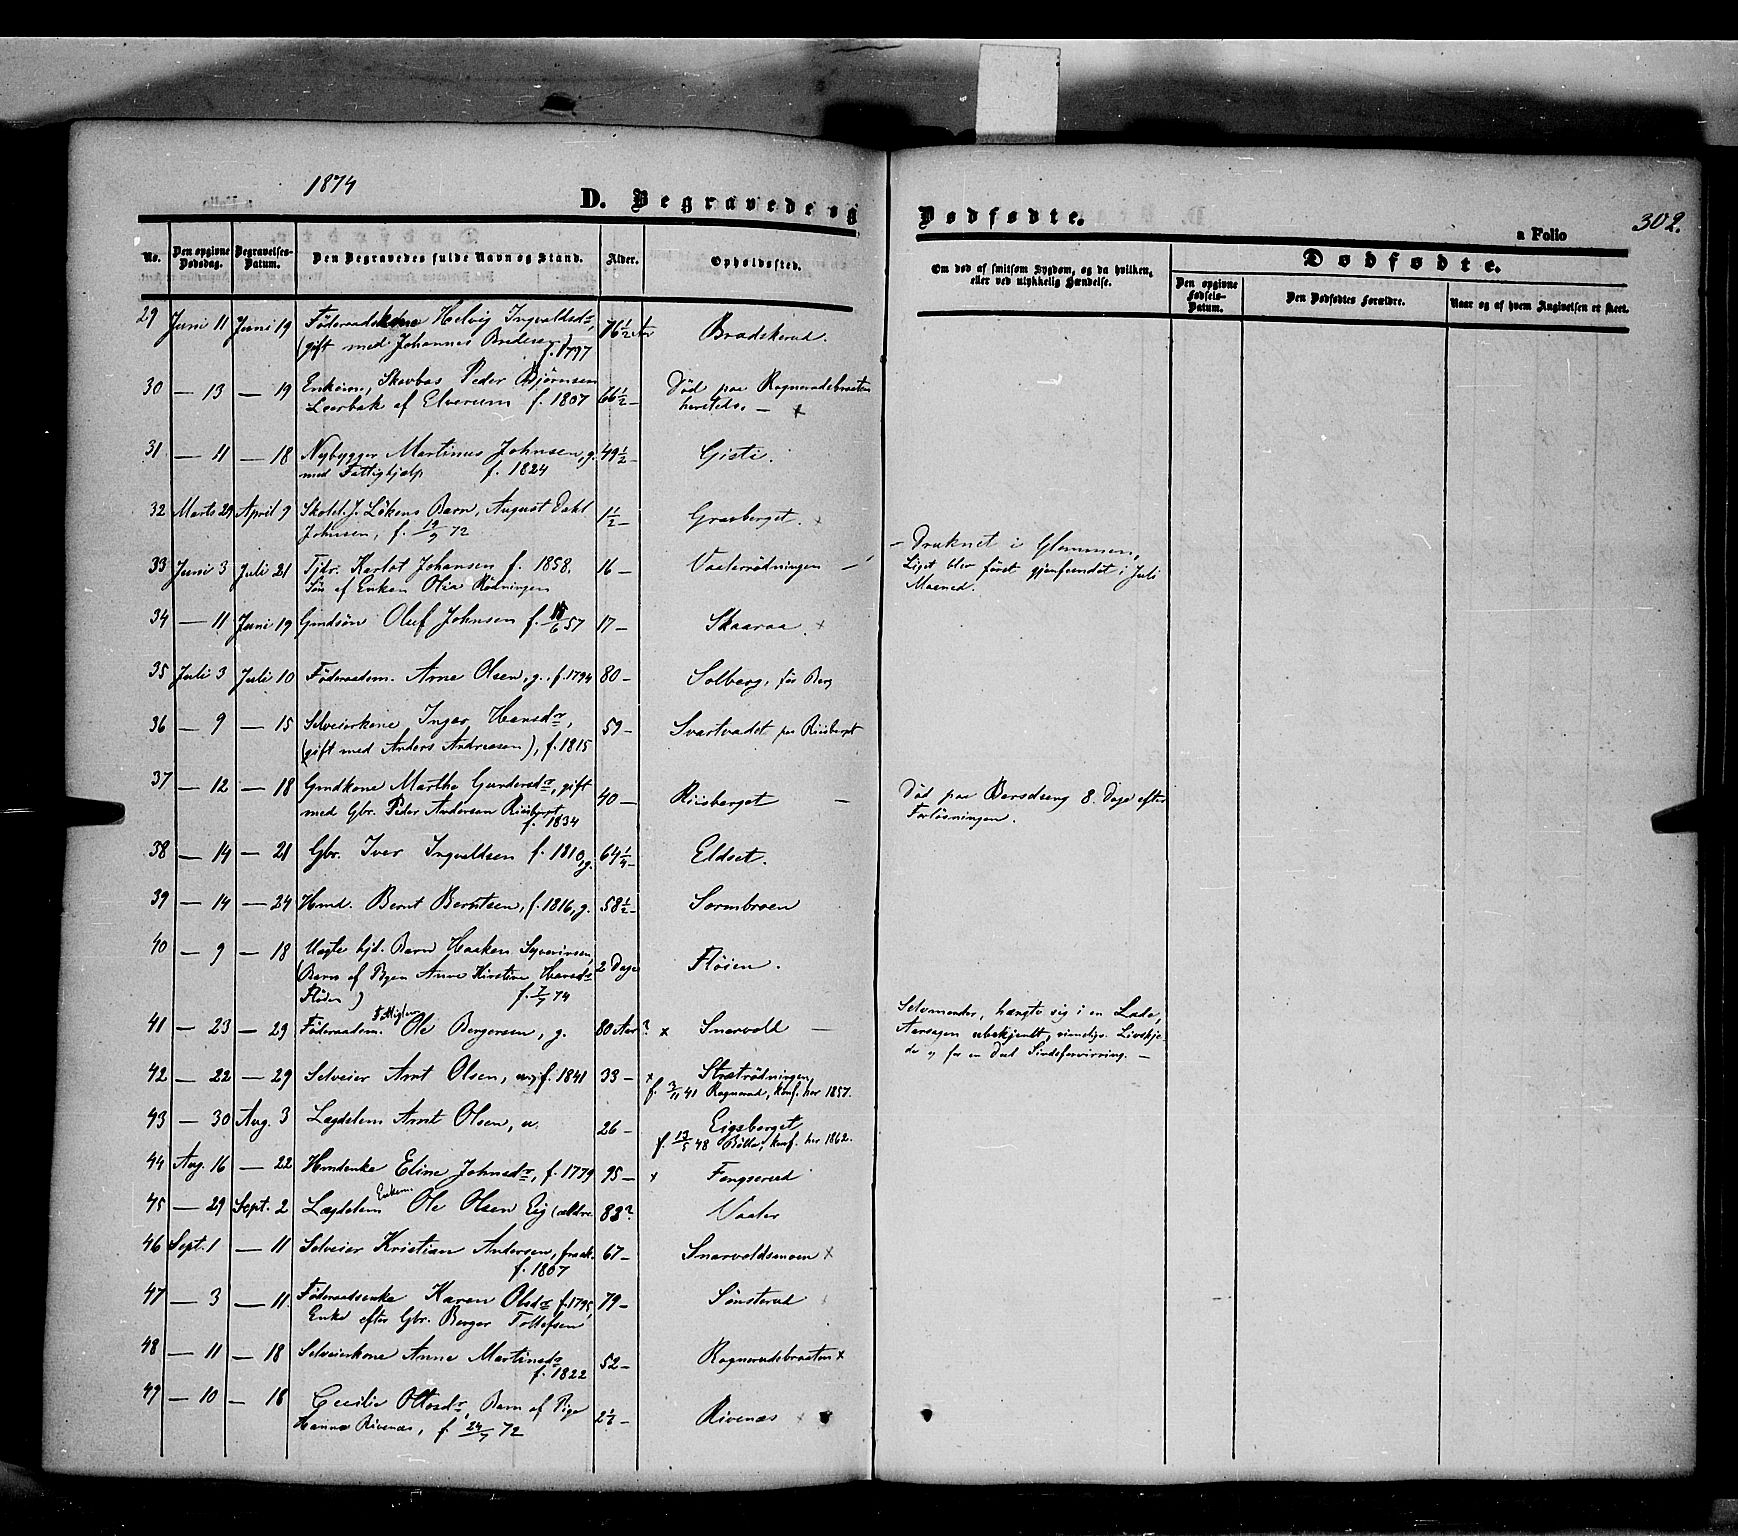 1874
D. Begravede og Dødfødte.
a Folio 302.
No. Den opgivne Dødsdag. Begravelses-Datum. Den Begravedes fulde Navn og Stand. Alder. Opholdssted.
Om død af smitsom Sygdom, og da hvilken, eller ved ulykkelig Hændelse.
Dødfødte.
Den opgivne Fødsels-Datum. Den Dødfødtes Forældre. Naar og af hvem Angivelsen er skeet.
29 Juni 11 Juni 19 Føderaadskone Helvig Ingvaldsdr, 76 1/2 Aar Bradskerud.
(gift med Johannes Pedersen) f. 1797
30 — 13 — 19 Enkem. Skovbas Peder Bjørnsen 66 1/2 — Død paa Ragnerudsbraaten
Leerbak af Elverum f. 1807 hersteds. — x
31 — 11 — 18 Nybygger Martinus Johnsen, g. 49 1/2 — Gisti.
med Fattighjælp f. 1824
32 Marts 29 April 9 Skolel. J. Løkens Barn, August Dahl 1 1/2 — Gravberget. x
Johnsen, f. 19/9 72
33 Juni 3 Juli 21 Tjdr. Karlot Johansen f. 1858. 16 — Vaalerrødningen —
Søn af Enken Olia Rødningen
— Druknet i Glommen,
Liget blev først gjenfundet i Juli
Maaned.
34 — 11 Juni 19 Gmdsøn Oluf Johnsen f. 15/6 57 17 — Skaaraa x
35 Juli 3 Juli 10 Føderaadsm. Arne Olsen, g. f. 1794 80 — Solberg, før Berg
36 — 9 — 15 Selveierkone Inger Hansdr, 59 — Svartvadet paa Riisberget
(gift med Anders Andreasen), f. 1815
37 — 12 — 18 Gmdkone Marthe Gundersdr, gift 40 — Riisberget —
med Gbr. Peder Andersen Riisberget
f. 1834
Død paa Barselseng 8. Dage efter
Forløsningen.
38 — 14 — 21 Gbr. Iver Ingvaldsen f. 1810, g. 64 1/4 — Eldset.
39 — 14 — 24 Hmd. Bernt Berntsen, f. 1816, g. 58 1/2 — Sormbroen
40 — 9 — 18 Uægte hjd. Barn Haaken Syverinsen, 2 Dage Fløien.
(Barn af Pigen Anne Kirstine Hansdr
Fløien) f. 7/7 74
41 — 23 — 29 Føderaadsm. Fattiglem Ole Bergersen, g. 80 Aar? x Snarvold —
Selvmorder, hængte sig i en Lade,
Aarsagen ubekjendt, rimeligv. Livskje-
de og for en Deel Sindsforvirring. —
42 — 22 — 29 Selveier Arnt Olsen, ug. f. 1841 33 — x Strætrødningen,
f. 3/11 41 Ragnerud, konf. her 1857.
43 — 30 Aug. 3 Lægdslem Arnt Olsen, u. 26 — Eigsberget
f. 13/5 48 Bølla, konf. her 1862.
44 Aug. 16 — 22 Hmdenke Eline Johnsdr, f. 1779 95 — x Fengerud
45 — 29 Sept. 2 Lægdslem Enkem. Ole Olsen Eig (ældre 83? Vaaler
46 Sept. 1 — 11 Selveier Kristian Andersen, frask. 67 — Snarvoldsmoen x
f. 1807
47 — 3 — 11 Føderaadsenke Karen Olsdr f. 1795, 79 — Sønsterud
Enke efter Gbr. Berger Tollefsen
48 — 11 — 18 Selveierkone Anne Martinsdr 52 — Ragnerudsbraaten x
f. 1822
49 — 10 — 18 Cecilie Ottosdr, Barn af Pige 2 1/2 — Rivenæs x
Hanna Rivenæs, f. 24/7 72